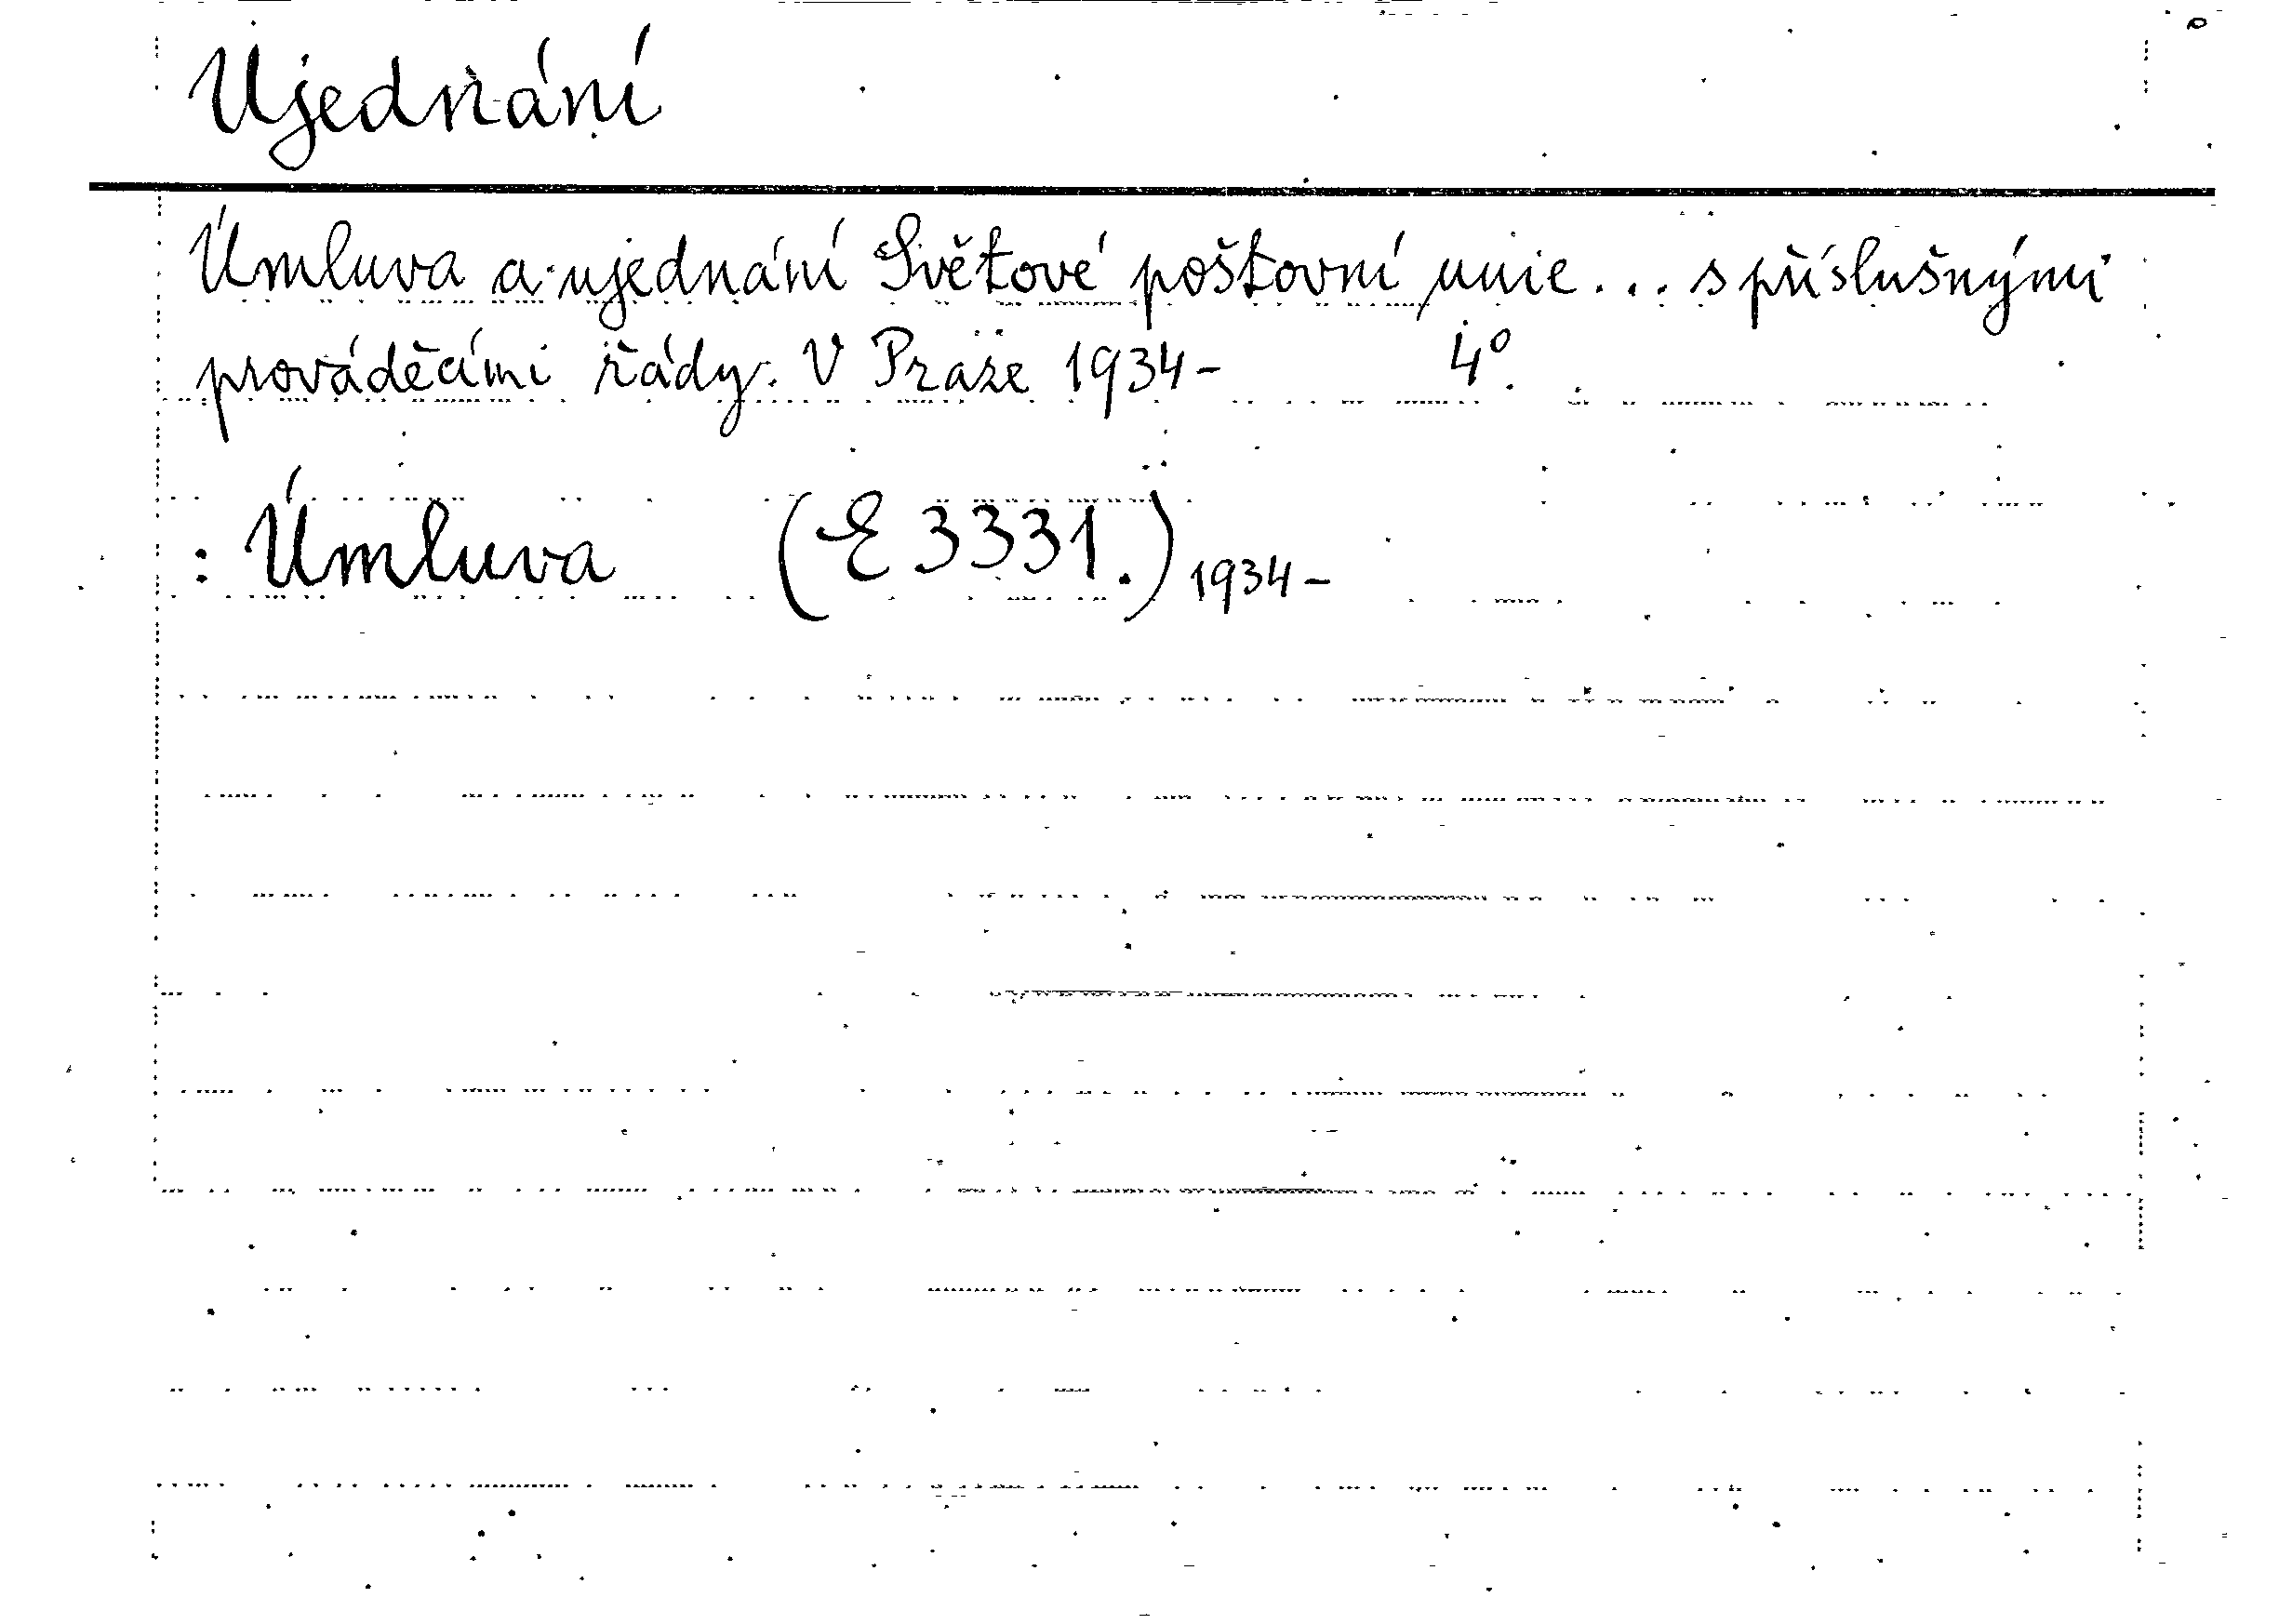 Ujednání
Úmluva a ujednání Světové poštovní unie... s příslušnými
prováděcími řády. V Praze 1934- 4°.
: Úmluva (E 3331.) 1934-